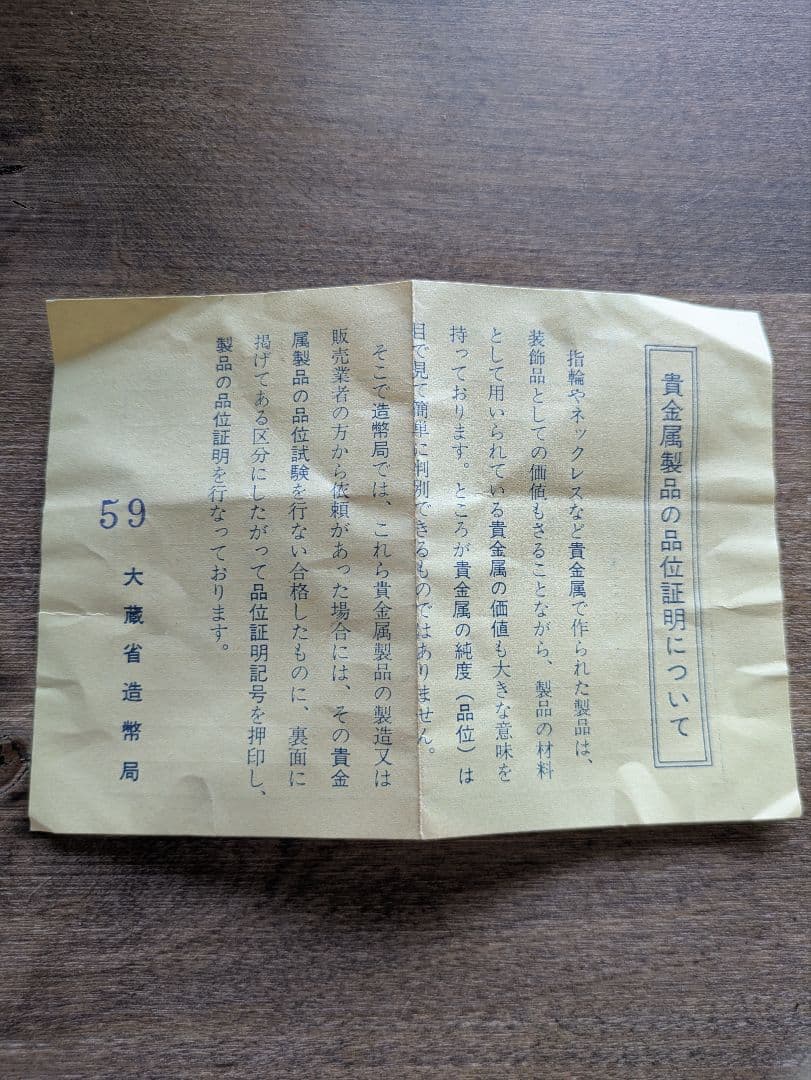 貴金属製品の品位証明について
指輪やネックレスなど貴金属で作られた製品は、
装飾品としての価値もさることながら、製品の材料
として用いられている貴金属の価値も大きな意味を
持っております。ところが貴金属の純度（品位）は
目で見て簡単に判別できるものではありません。
そこで造幣局では、これら貴金属製品の製造又は
販売業者の方から依頼があった場合には、その貴金
属製品の品位試験を行ない合格したものに、裏面に
掲げてある区分にしたがって品位証明記号を押印し、
製品の品位証明を行なっております。
大蔵省造幣局
59